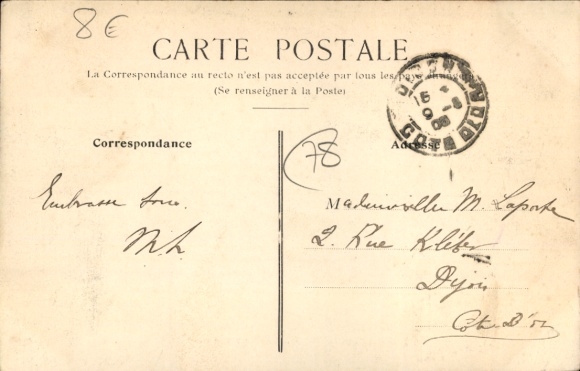 8 €
CARTE POSTALE
La Correspondance au recto n'est pas acceptée par tous les pays étrangers
(Se renseigner à la Poste)
Correspondance
Adresse
78
DIJON
15
9 - 8
08
COTE D'OR
Embrasse tous.
M L
Mademoiselle M. Laporte
2. Rue Kléber
Dijon
Côte D'or